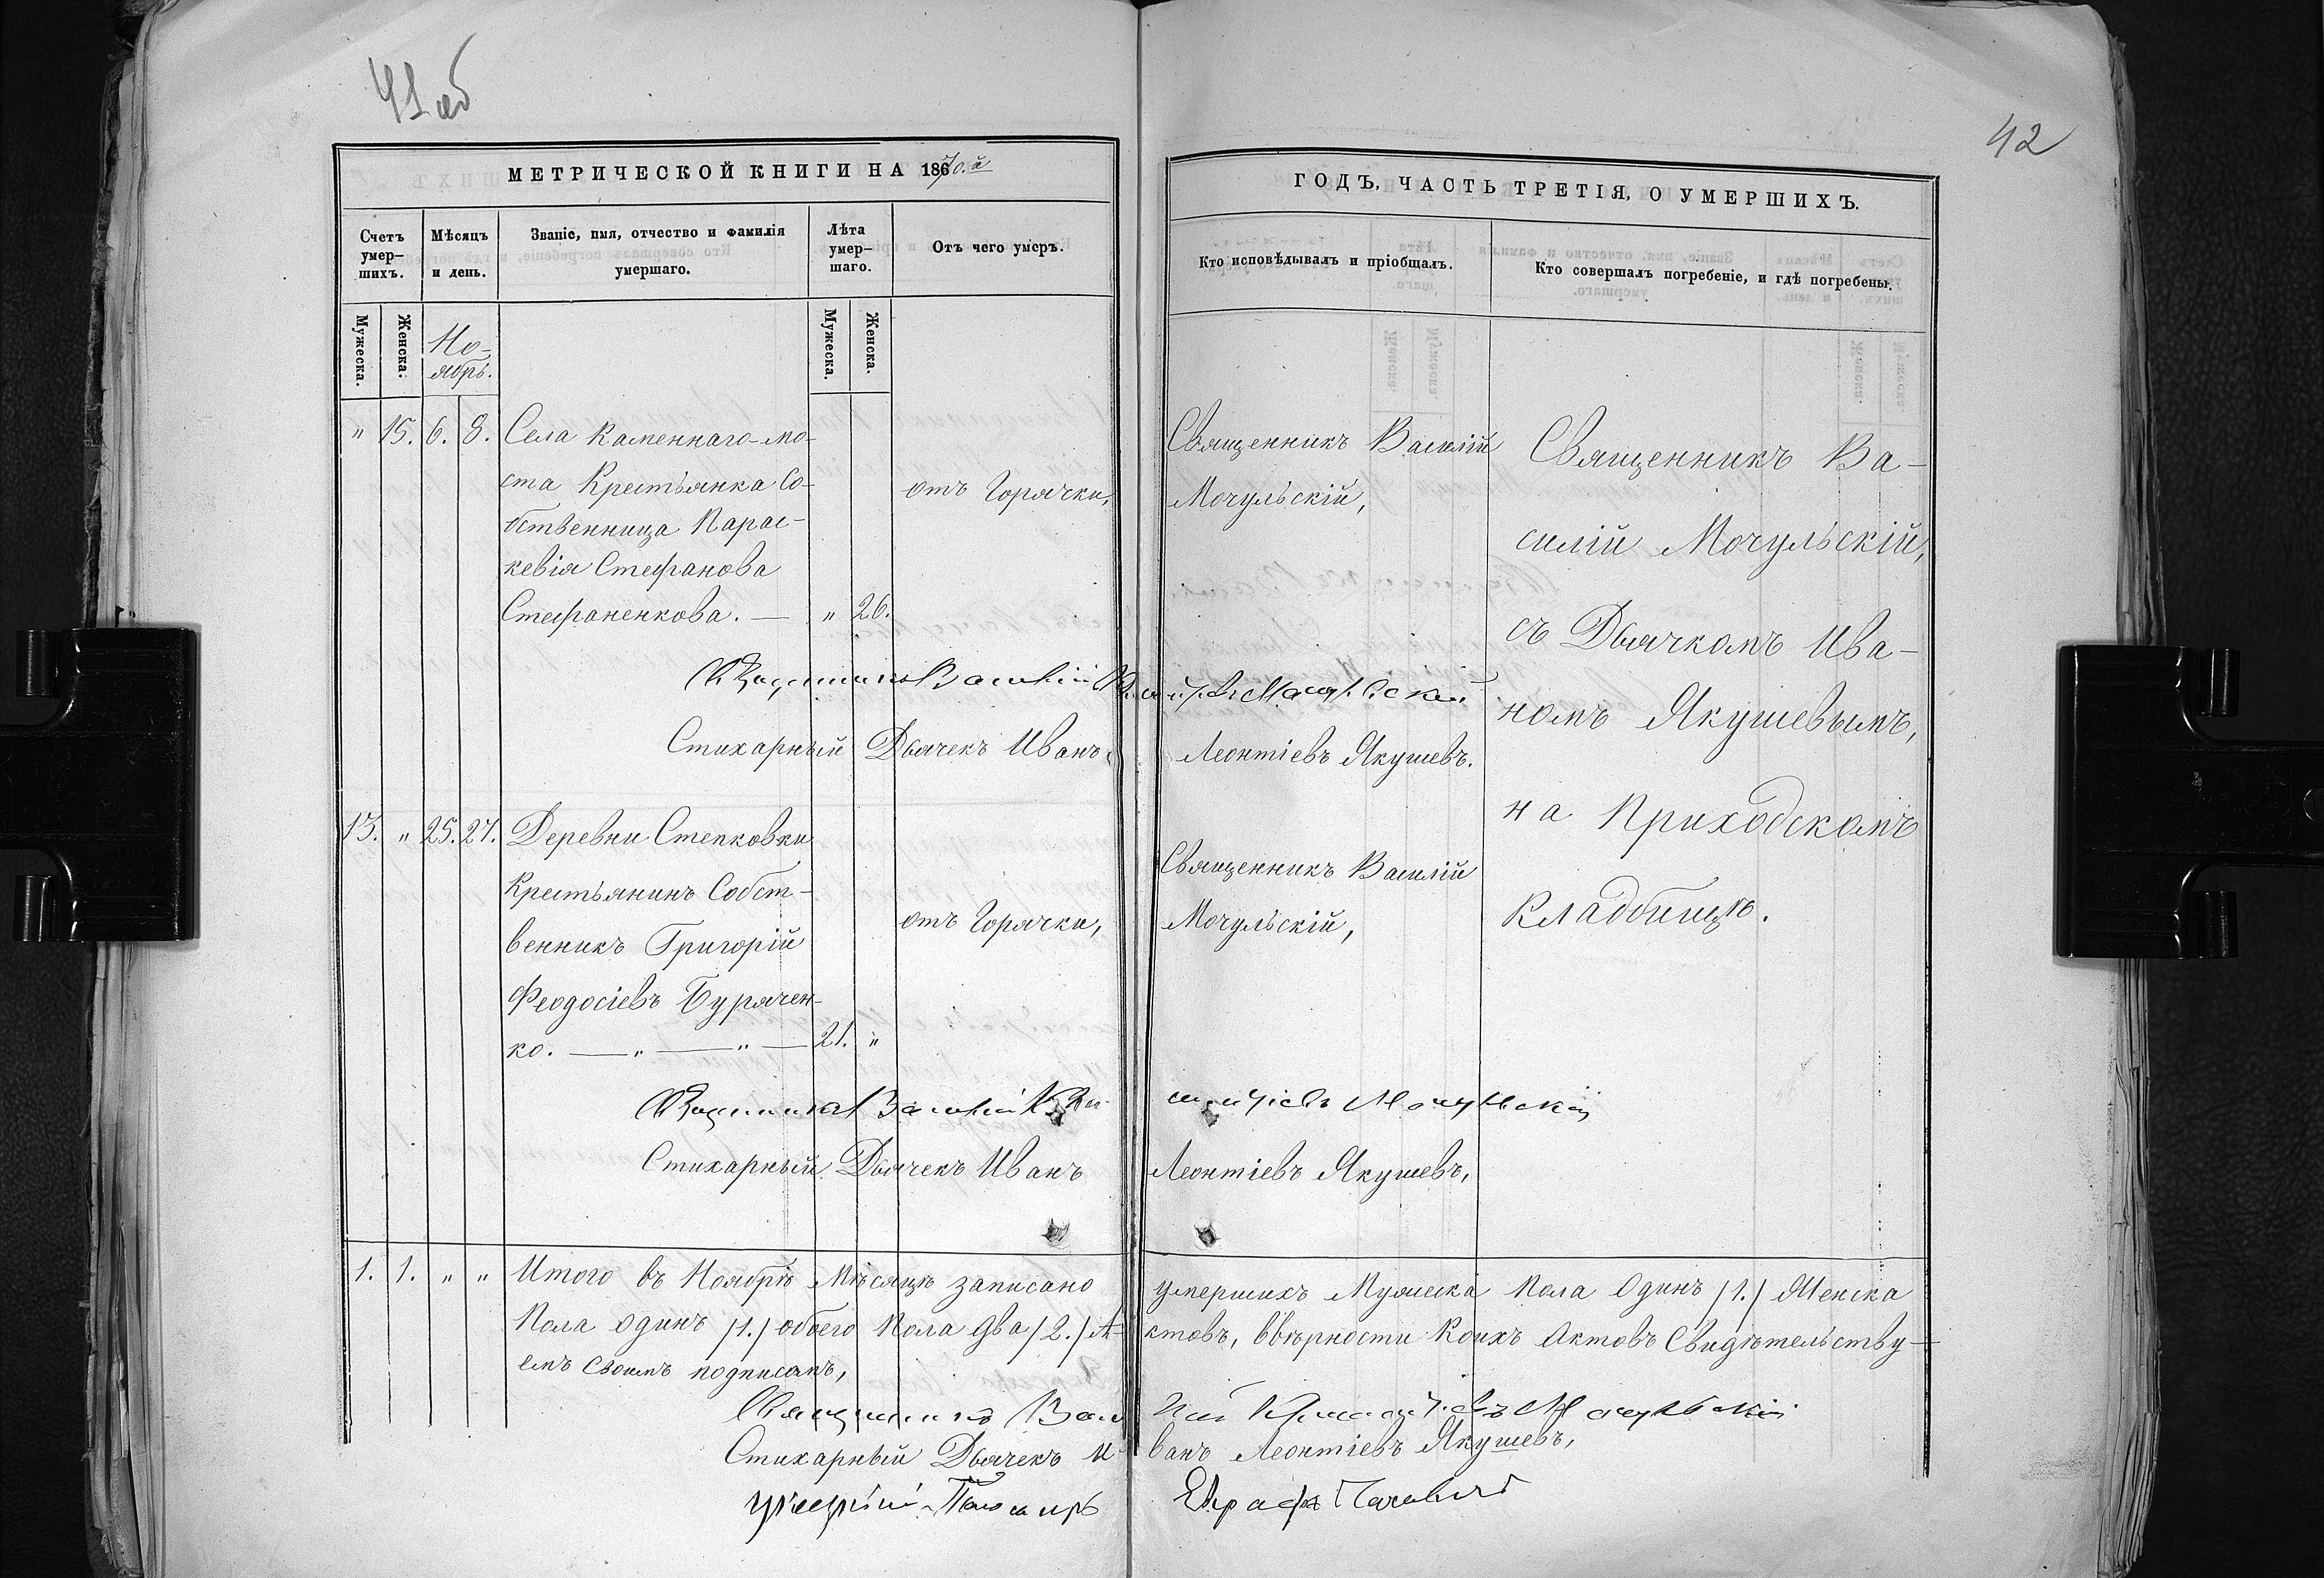 41 об
42
МЕТРИЧЕСКОЙ КНИГИ НА 1870.й
ГОДЪ, ЧАСТЬ ТРЕТІЯ, О УМЕРШИХЪ.
Счетъ умер-шихъ.
Мѣсяцъ и день.
Званіе, имя, отчество и фамилія умершаго.
Лѣта умер-шаго.
Отъ чего умеръ.
Кто исповѣдывалъ и пріобщалъ.
Кто совершалъ погребеніе, и гдѣ погребены.
Мужеска.
Женска.
Но-
ябрь.
Мужеска.
Женска.
" 15. 6. 8. Села Каменнаго-мо-
ста Крестьянка Со-
бственница Парас-
кевія Стефанова
Стефаненкова. — " 26.
отъ Горячки,
Священникъ Василій
Мочульскій,
Священникъ Ва-
силій Мочульскій,
съ Дьячкомъ Ива-
номъ Якушевымъ,
на Приходскомъ
Кладбищѣ.
Священникъ Василій Мочульскій
Стихарный Дьячекъ Иванъ Леонтіевъ Якушевъ.
13. " 25. 27. Деревни Степковки
Крестьянинъ Собст-
венникъ Григорій
Феодосіевъ Бурячен-
ко. — " — " — 21. "
отъ Горячки,
Священникъ Василій
Мочульскій,
Священникъ Василій Мочульскій
Стихарный Дьячекъ Иванъ Леонтіевъ Якушевъ,
1. 1. " " Итого въ Ноябрѣ Мѣсяцѣ записано умершихъ Мужеска пола Одинъ /1./ Женска
Пола одинъ /1./ обоего Пола два /2./ А-ктовъ, ввѣрности Коихъ Актовъ Свидѣтельству-
емъ своимъ подписомъ,
Священникъ Васи лій Мочульскій
Стихарный Дьячекъ И-ванъ Леонтіевъ Якушевъ,